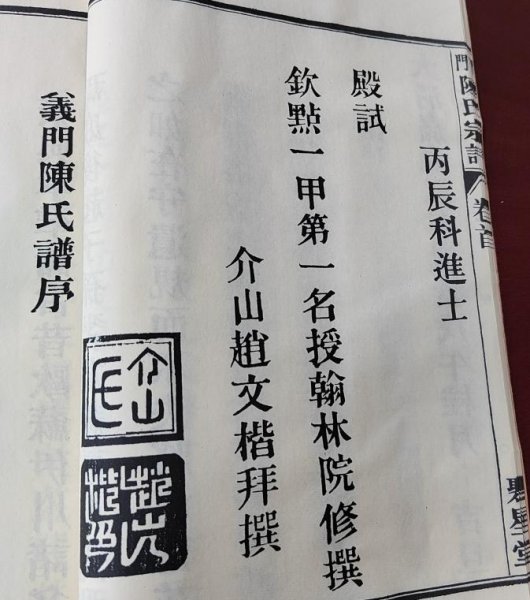 門陳氏宗譜
卷首
聚星堂
丙辰科進士
殿試
欽點一甲第一名授翰林院修撰
介山趙文楷拜撰
介山
氏
趙文
楷印
義門陳氏譜序